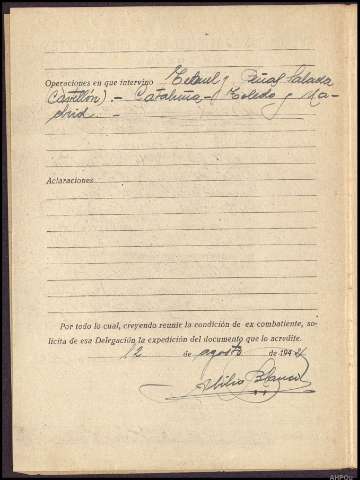 Operaciones en que intervino Teruel, Peñas Salada
(Castellón).- Cataluña,- Toledo y Ma-
drid. -
Aclaraciones
Por todo lo cual, creyendo reunir la condición de ex combatiente, so-
licita de esa Delegación la expedición del documento que lo acredite.
12 de agosto de 194
Blanco
AHPOu